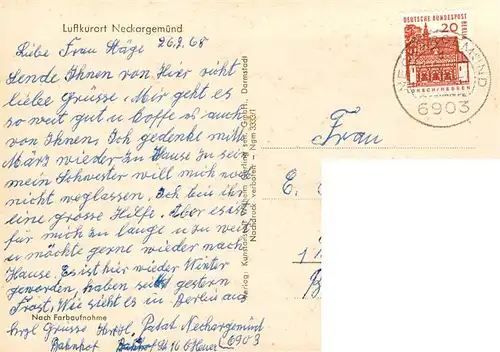 Luftkurort Neckargemünd
Liebe Frau Häge 26.2.68
Sende Ihnen von Hier recht
liebe Grüsse. Mir geht es
so weit gut u hoffe es auch
von Ihnen, Ich gedenke mitte
März wieder zu Hause zu sein
mein Schwester will mich noch
nicht weglassen. Ich bin ihr
eine grosse Hilfe. Aber es ist
für mich zu lange u zu weit
u möchte gerne wieder nach
Hause. Es ist hier wieder Winter
geworden, haben seit gestern
Frost, Wie sieht es in Berlin aus
Nach Farbaufnahme
hrzl Grüsse Neckargemünd
Bahnhof 6903
Nachdruck verboten - Ngm 3333/1
DEUTSCHE BUNDESPOST
BERLIN
20
LORSCH/HESSEN
6903
Frau